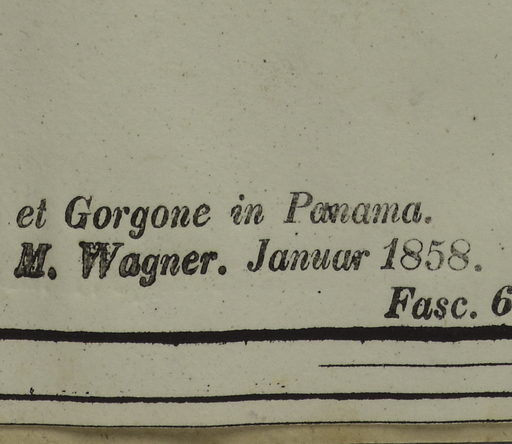 et Gorgone in Panama.
M. Wagner. Januar 1858.
Fasc. 6